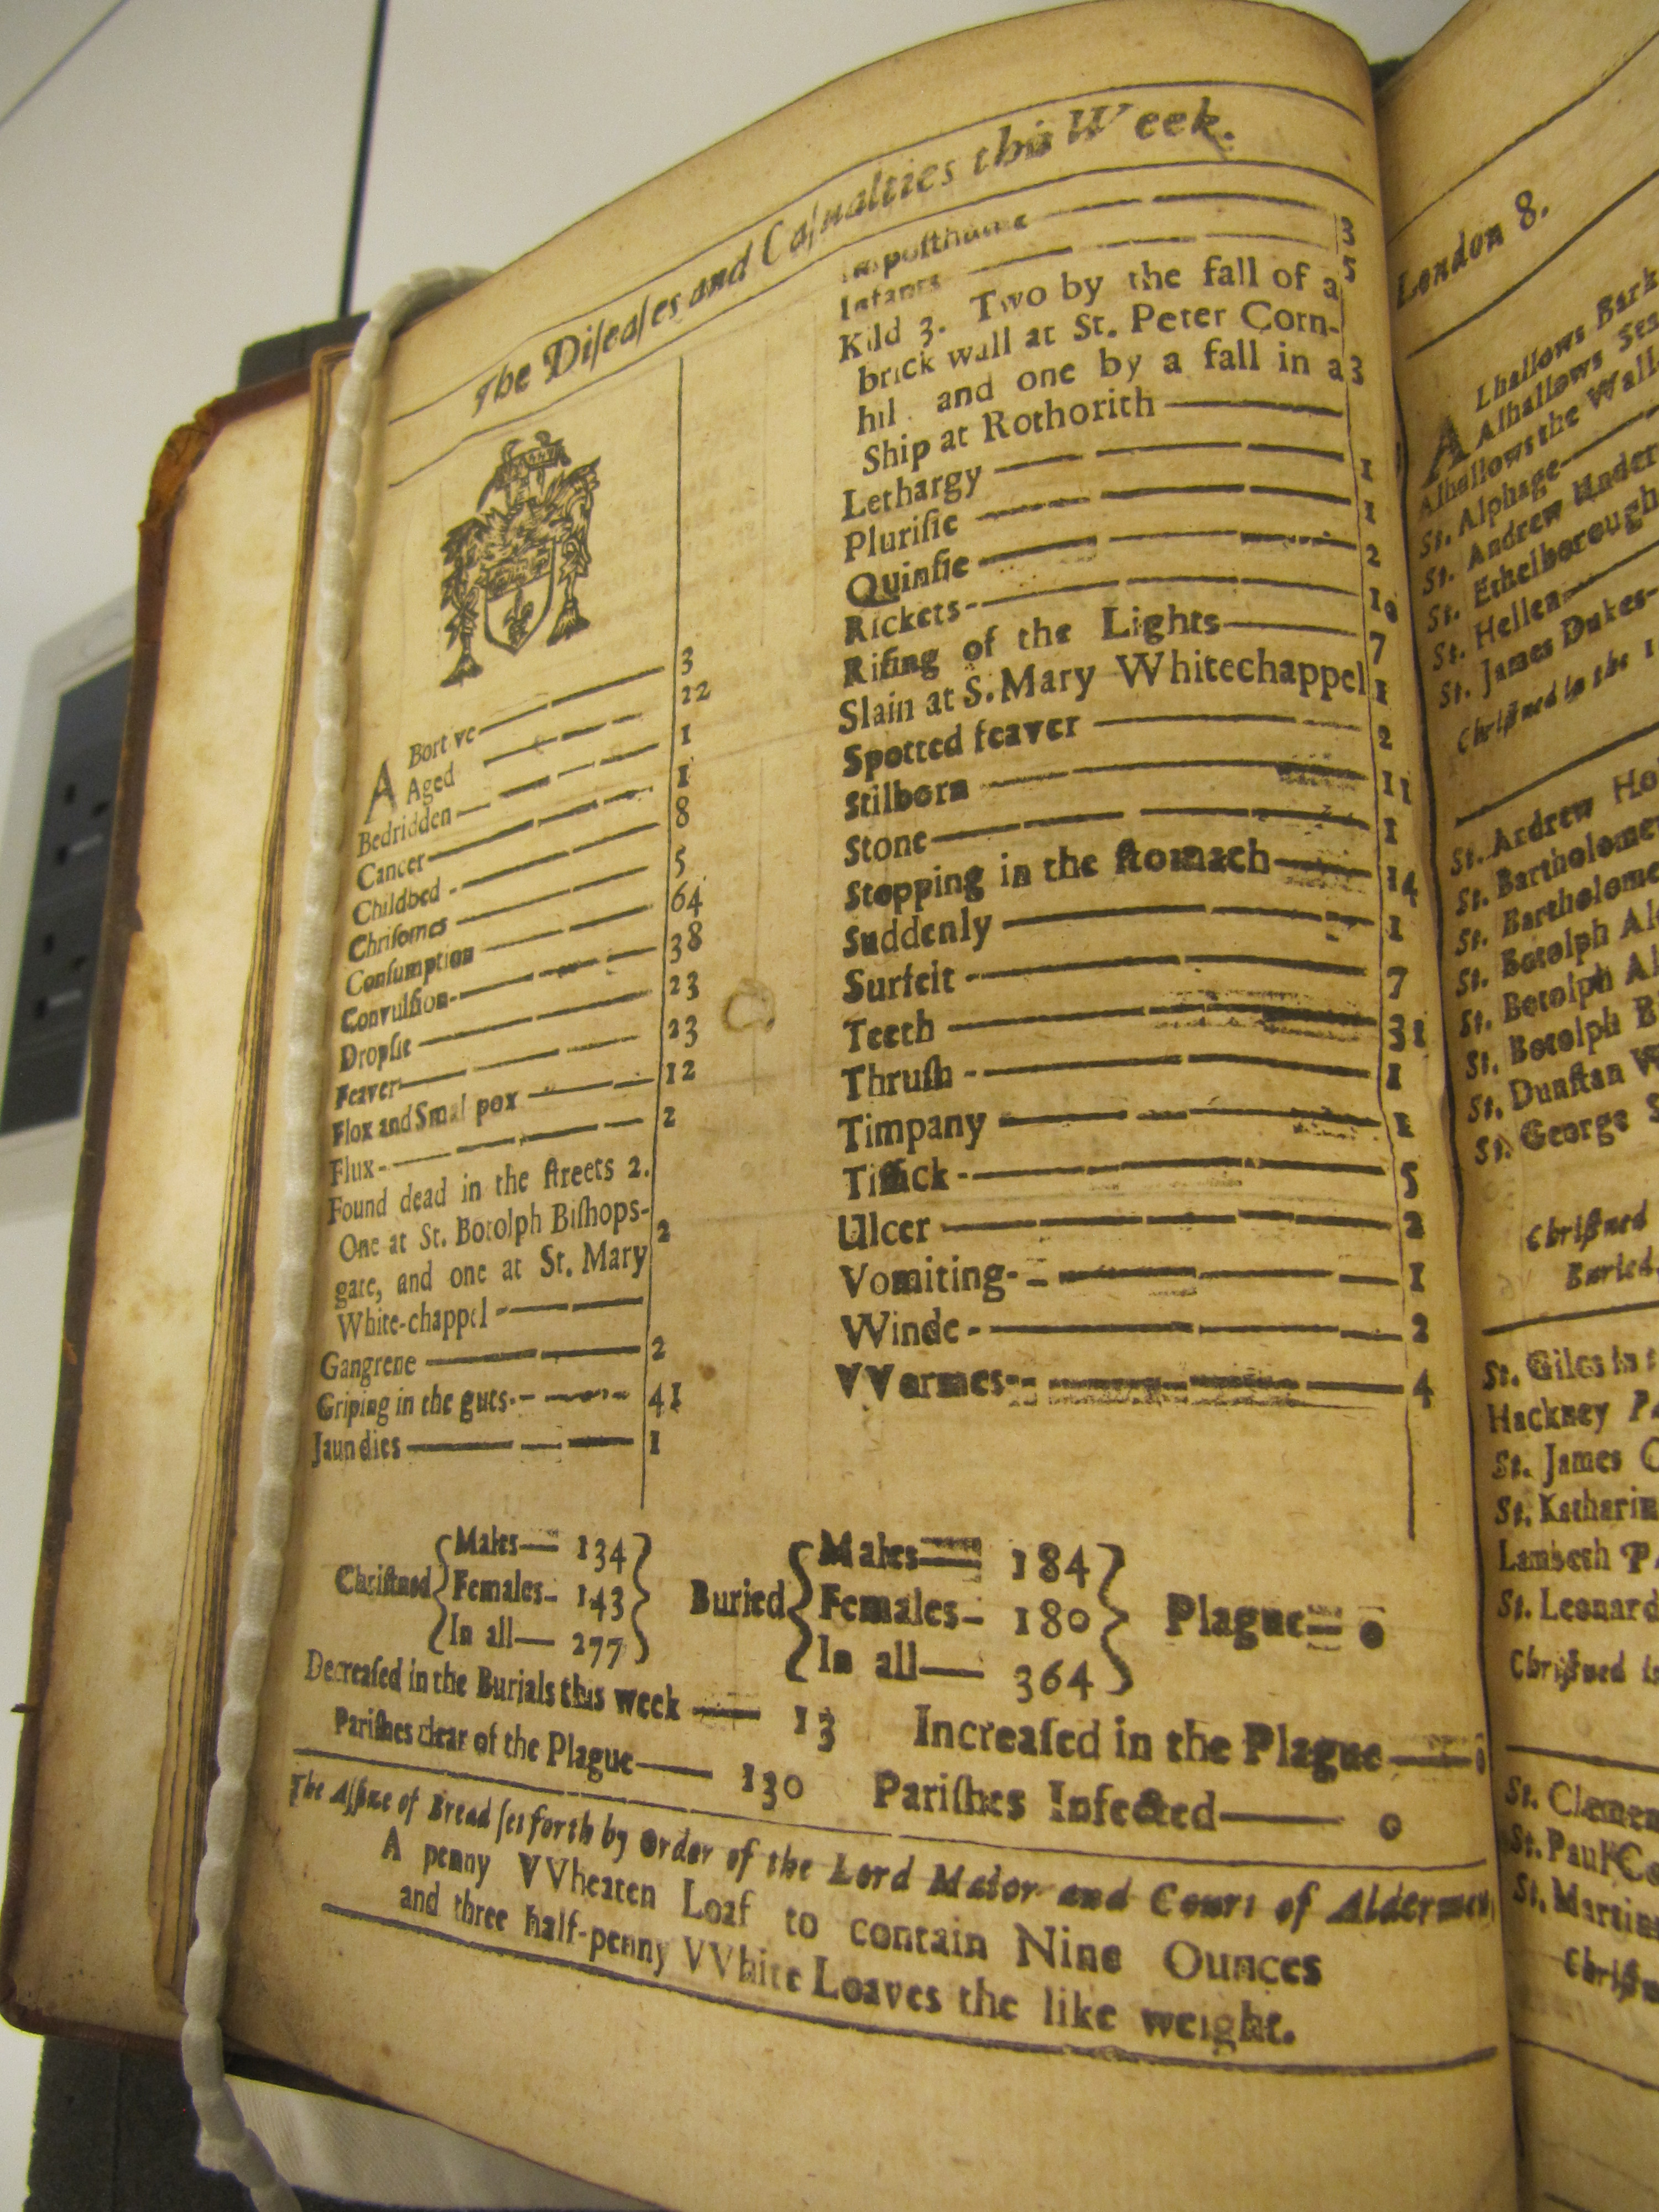 The Diſeaſes and Caſualties this Week.
ABortive 3
Aged 22
Bedridden 1
Cancer 1
Childbed 8
Chriſomes 5
Conſumption 64
Convulſion 38
Dropſie 23
Feaver 23
Flox and Smal pox 12
Flux 2
Found dead in the ſtreets 2.
One at St. Botolph Biſhops-
gate, and one at St. Mary 2
White-chappel
Gangrene 2
Griping in the guts 41
Jaundies 1
Impoſthume 3
Infants 5
Kild 3. Two by the fall of a
brick wall at St. Peter Corn-
hil and one by a fall in a 3
Ship at Rothorith
Lethargy 1
Pluriſie 1
Quinſie 2
Rickets 10
Riſing of the Lights 7
Slain at S. Mary Whitechappel 1
Spotted feaver 2
Stilborn 11
Stone 1
Stopping in the ſtomach 14
Suddenly 1
Surfeit 7
Teeth 31
Thruſh 1
Timpany 1
Tiſſick 5
Ulcer 2
Vomiting 1
Winde 2
VVormes 4
Chriſtned { Males 134 Females 143 In all 277 }
Buried { Males 184 Females 180 In all 364 } Plague 0
Decreaſed in the Burials this week 13 Increaſed in the Plague 0
Pariſhes clear of the Plague 130 Pariſhes Infected 0
The Aſſize of Bread ſet forth by Order of the Lord Maior and Court of Aldermen,
A penny VVheaten Loaf to contain Nine Ounces
and three half-penny VVhite Loaves the like weight.
London 8.
ALhallows Bark
Alhallows
Alhallows the Wall
St. Alphage
St. Andrew Under
St. Ethelborough
St. Hellen
St. James Dukes
Chriſtned in the 1
St. Andrew Ho
St. Bartholome
St. Bartholome
St. Botolph Al
St. Botolph Al
St. Botolph B
St. Dunſtan W
St. George S
Chriſtned
Buried
St. Giles in
Hackney P
St. James C
St. Katharin
Lambeth P
St. Leonard
Chriſtned
St. Clemen
St. Paul Co
St. Martin